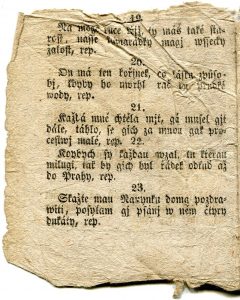 19.
Na moge ruce ty máš také sta-
rost, nasse magj wssecky
žalost, rep.
20.
On má ten kořjnek, co lásku způso-
bj, kdyby ho by
wody, rep.
21.
Každá mně chtěla mjt, gá musel gjt
dále, táhlo, se gich za mnou gak pro-
cestwj malé, rep. 22.
Kdybych sy každau wzal, tu kterau
milugi, tak by gich byl řádek odtud až
do Prahy, rep.
23.
Skažte mau pozdra-
witi, posylam gj psánj w něm čtyry
dukáty, rep.